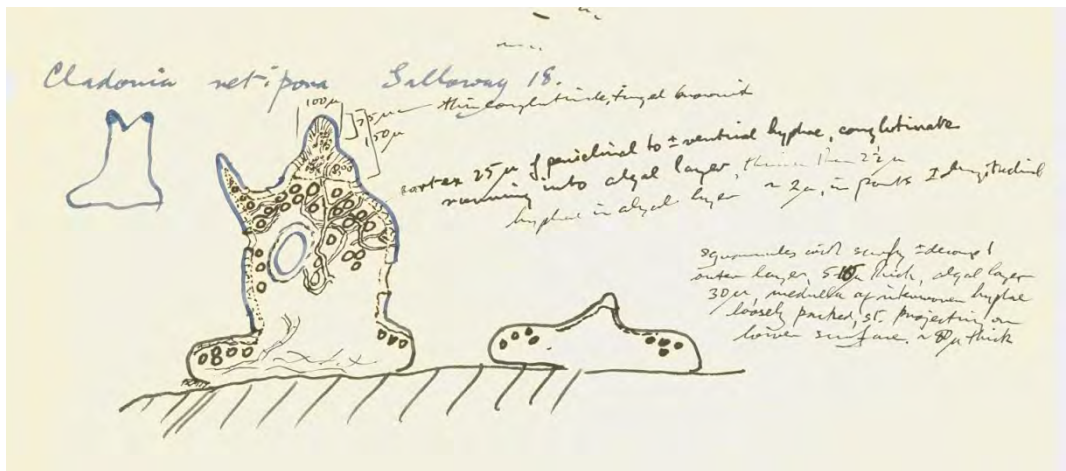 Cladonia retipora Galloway 18.
100µ 75µ thin conglutinate, tinged brownish
150µ
cortex 25µ of periclinal to ± ventrical hyphae, conglutinate
running into algal layer, thinner than 2½µ
hyphae in algal layer ~ 2µ, in parts ± longitudinal
squamules with scurfy ± decomp!
outer layer, thick, algal layer
30µ, medulla of interwoven hyphae
loosely packed, st. projecting on
lower surface, ~ 80µ thick